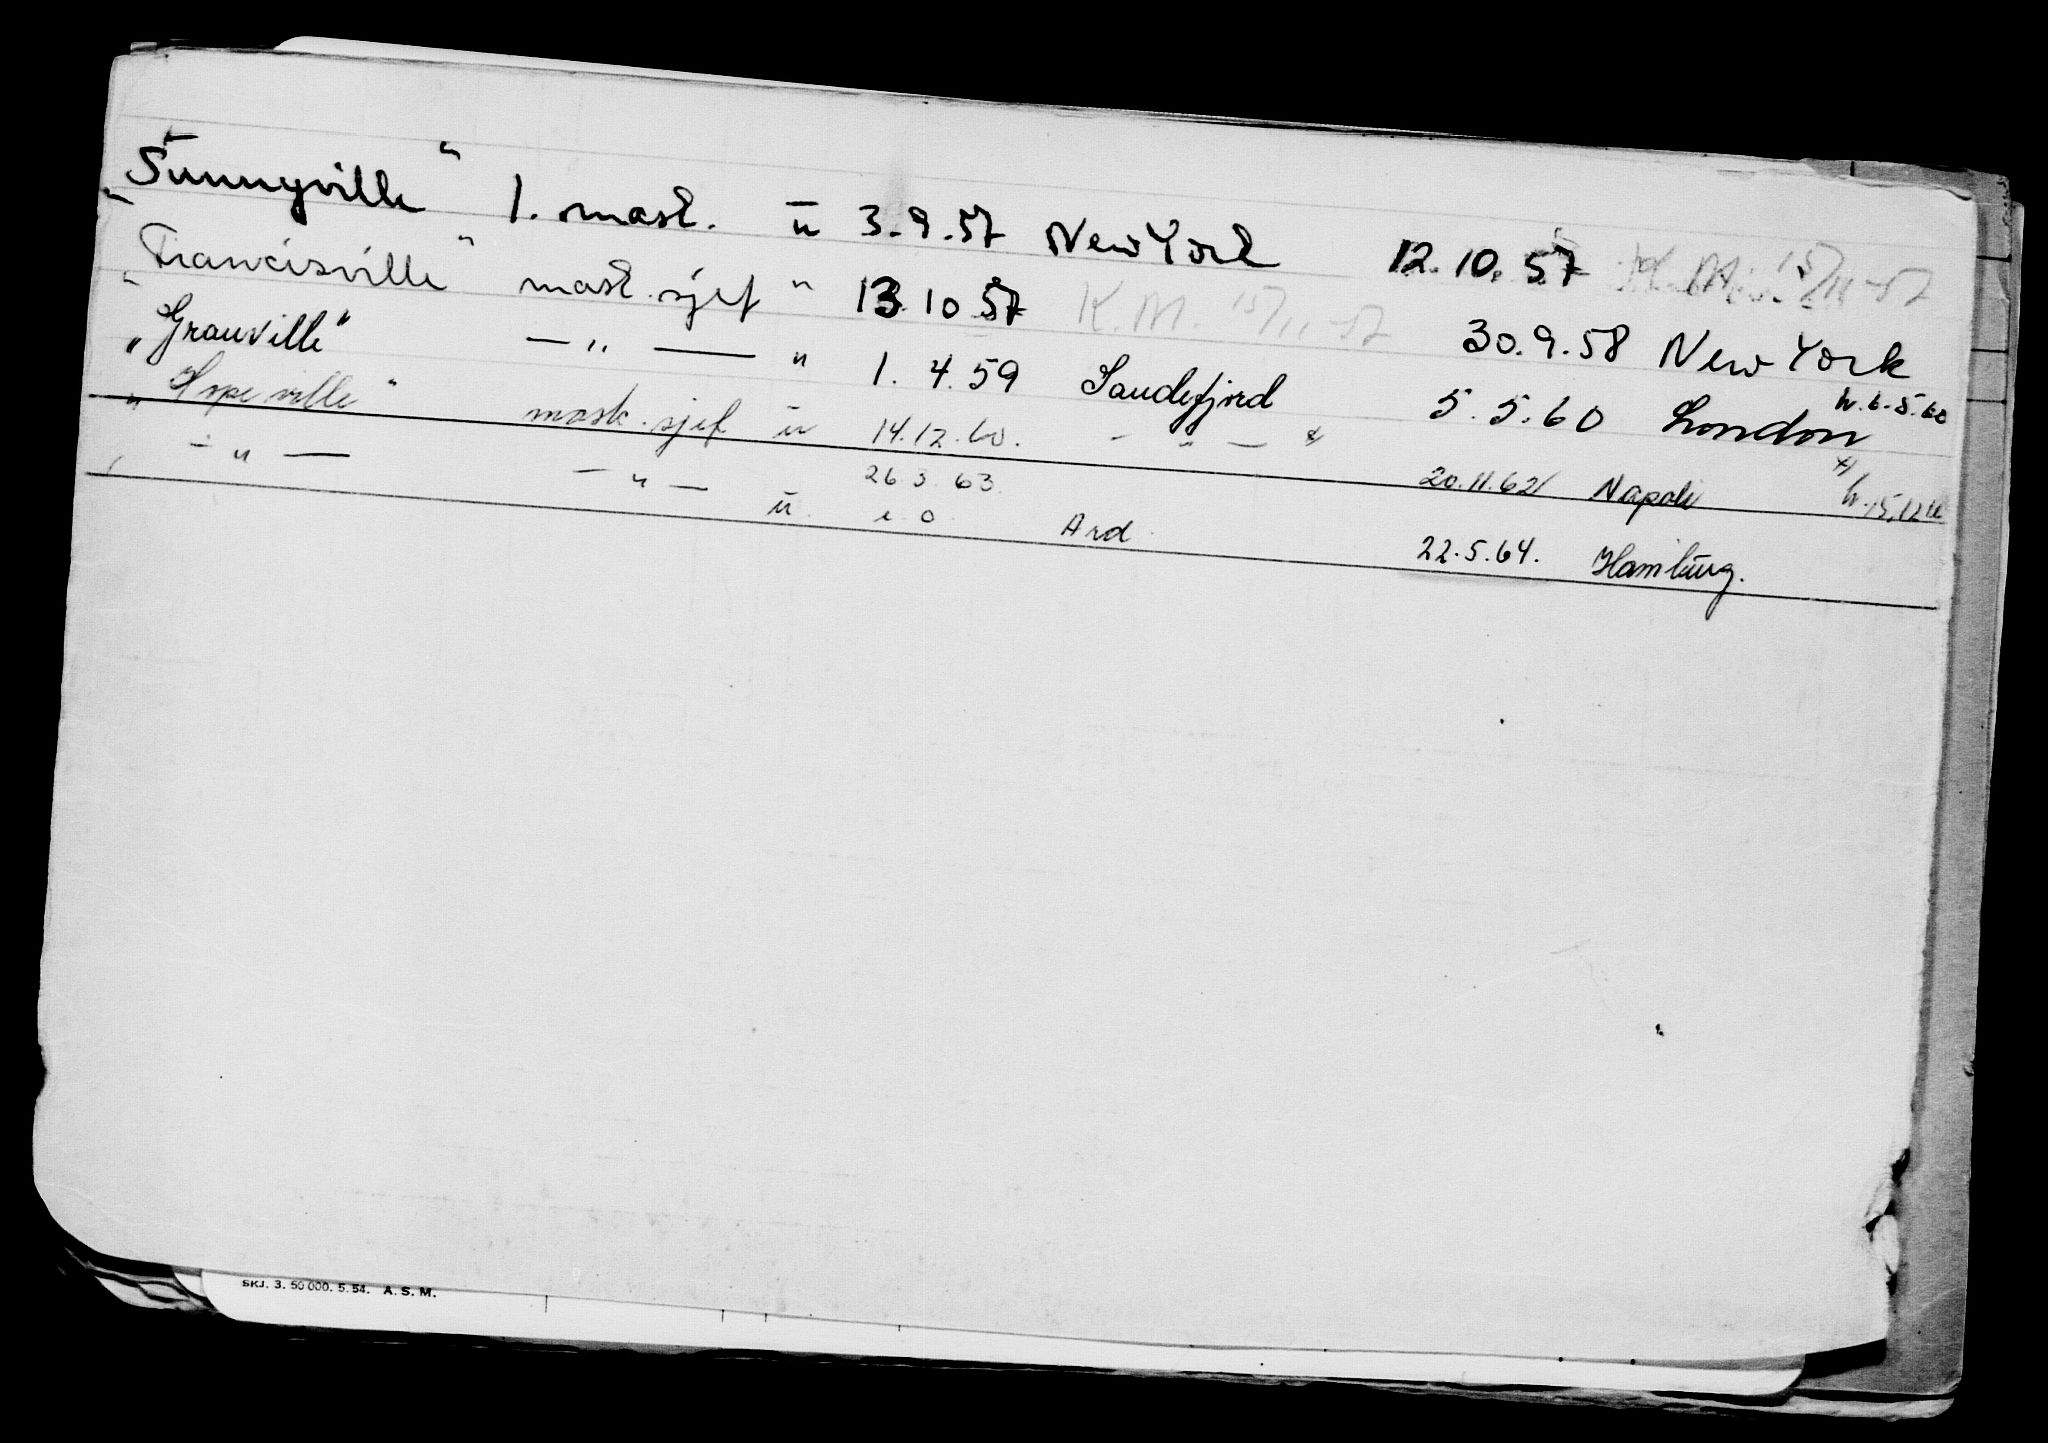 "Sunnyville" 1. mask. ū 3.9.57 New York 12.10.57
"Francisville" mask.sjef " 13.10 57 K.M. 15/11-57 30.9.58 New York
"Granville" — " — " 1.4.59 Sandefjord 5.5.60 London h.6.5.60
"Hopeville" mask.sjef ū 14.12.60. - " - x 20.11.62 Napoli x) h.15,12
- " — — " — ū 26 3 63 Ard. 22.5.64. Hamburg.
SKJ. 3. 50 000. 5. 54. A. S. M.